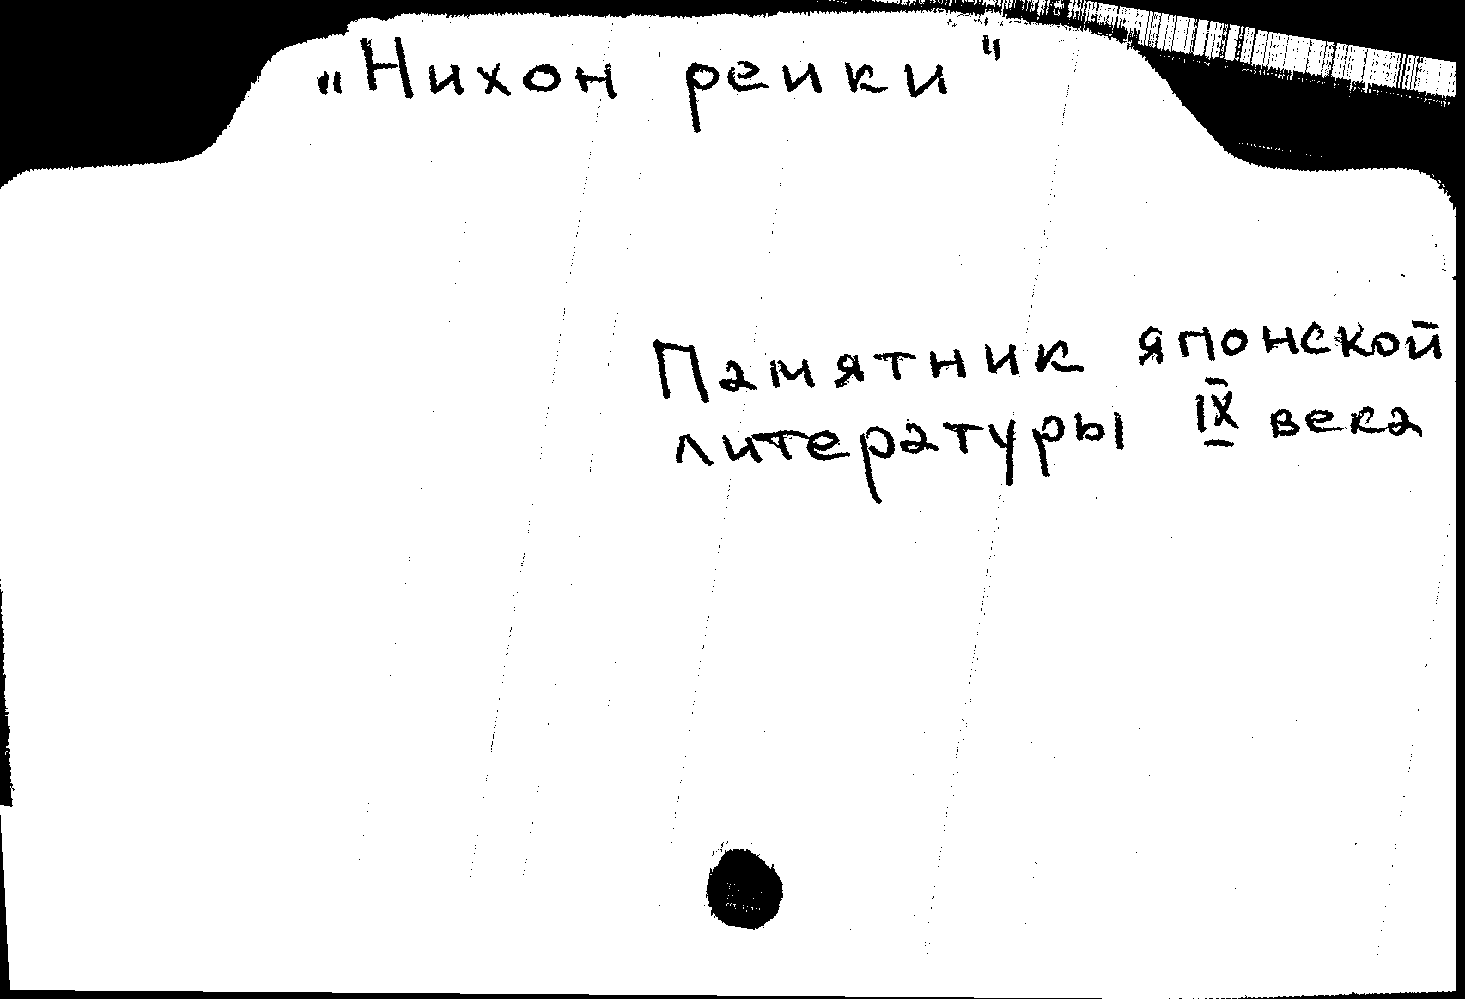 „Нихон реики"
Памятник японской
литературы IX века